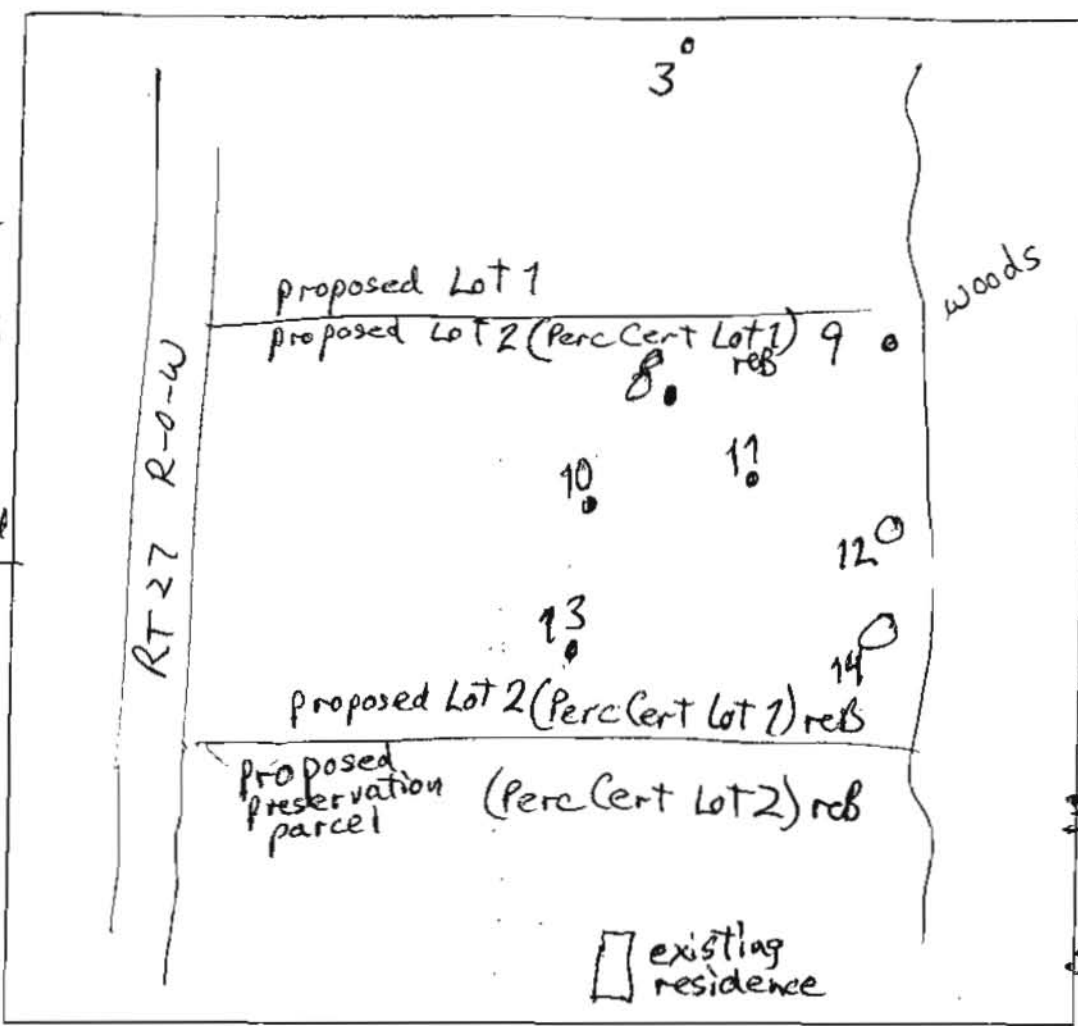 3
proposed Lot 1
proposed Lot 2 (Perc Cert Lot 1) 9
reB
8
woods
RT 27 R-O-W
10
11
12
13
14
proposed Lot 2 (Perc Cert Lot 1) reB
proposed
preservation
parcel
(Perc Cert Lot 2) reB
existing
residence